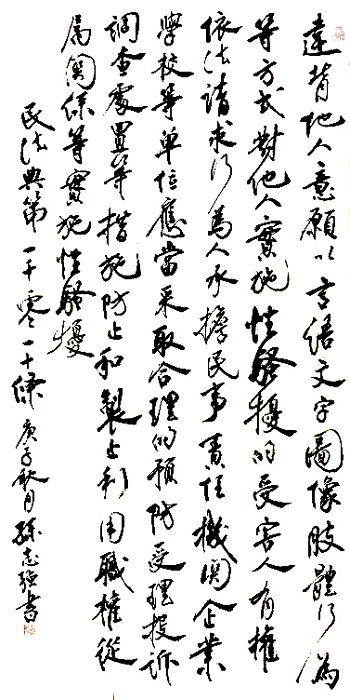 違背他人意願以言語文字圖像肢體行為
等方式對他人實施性騷擾的受害人有權
依法請求行為人承擔民事責任機關企業
學校等單位應當采取合理的預防受理投訴
調查處置等措施防止和製止利用職權從
属關係等實施性騷擾
民法典第一千零一十條庚子秋月孫志強書